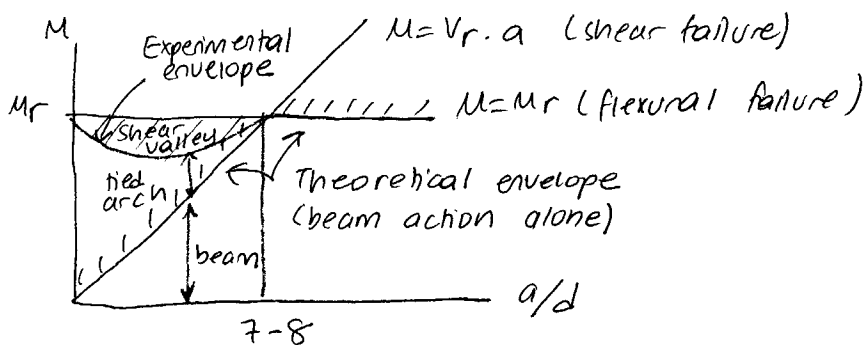 M
Experimental
envelope
M = Vr . a (shear failure)
Mr
M = Mr (flexural failure)
shear
valley
tied
arch
Theoretical envelope
(beam action alone)
beam
a/d
7-8